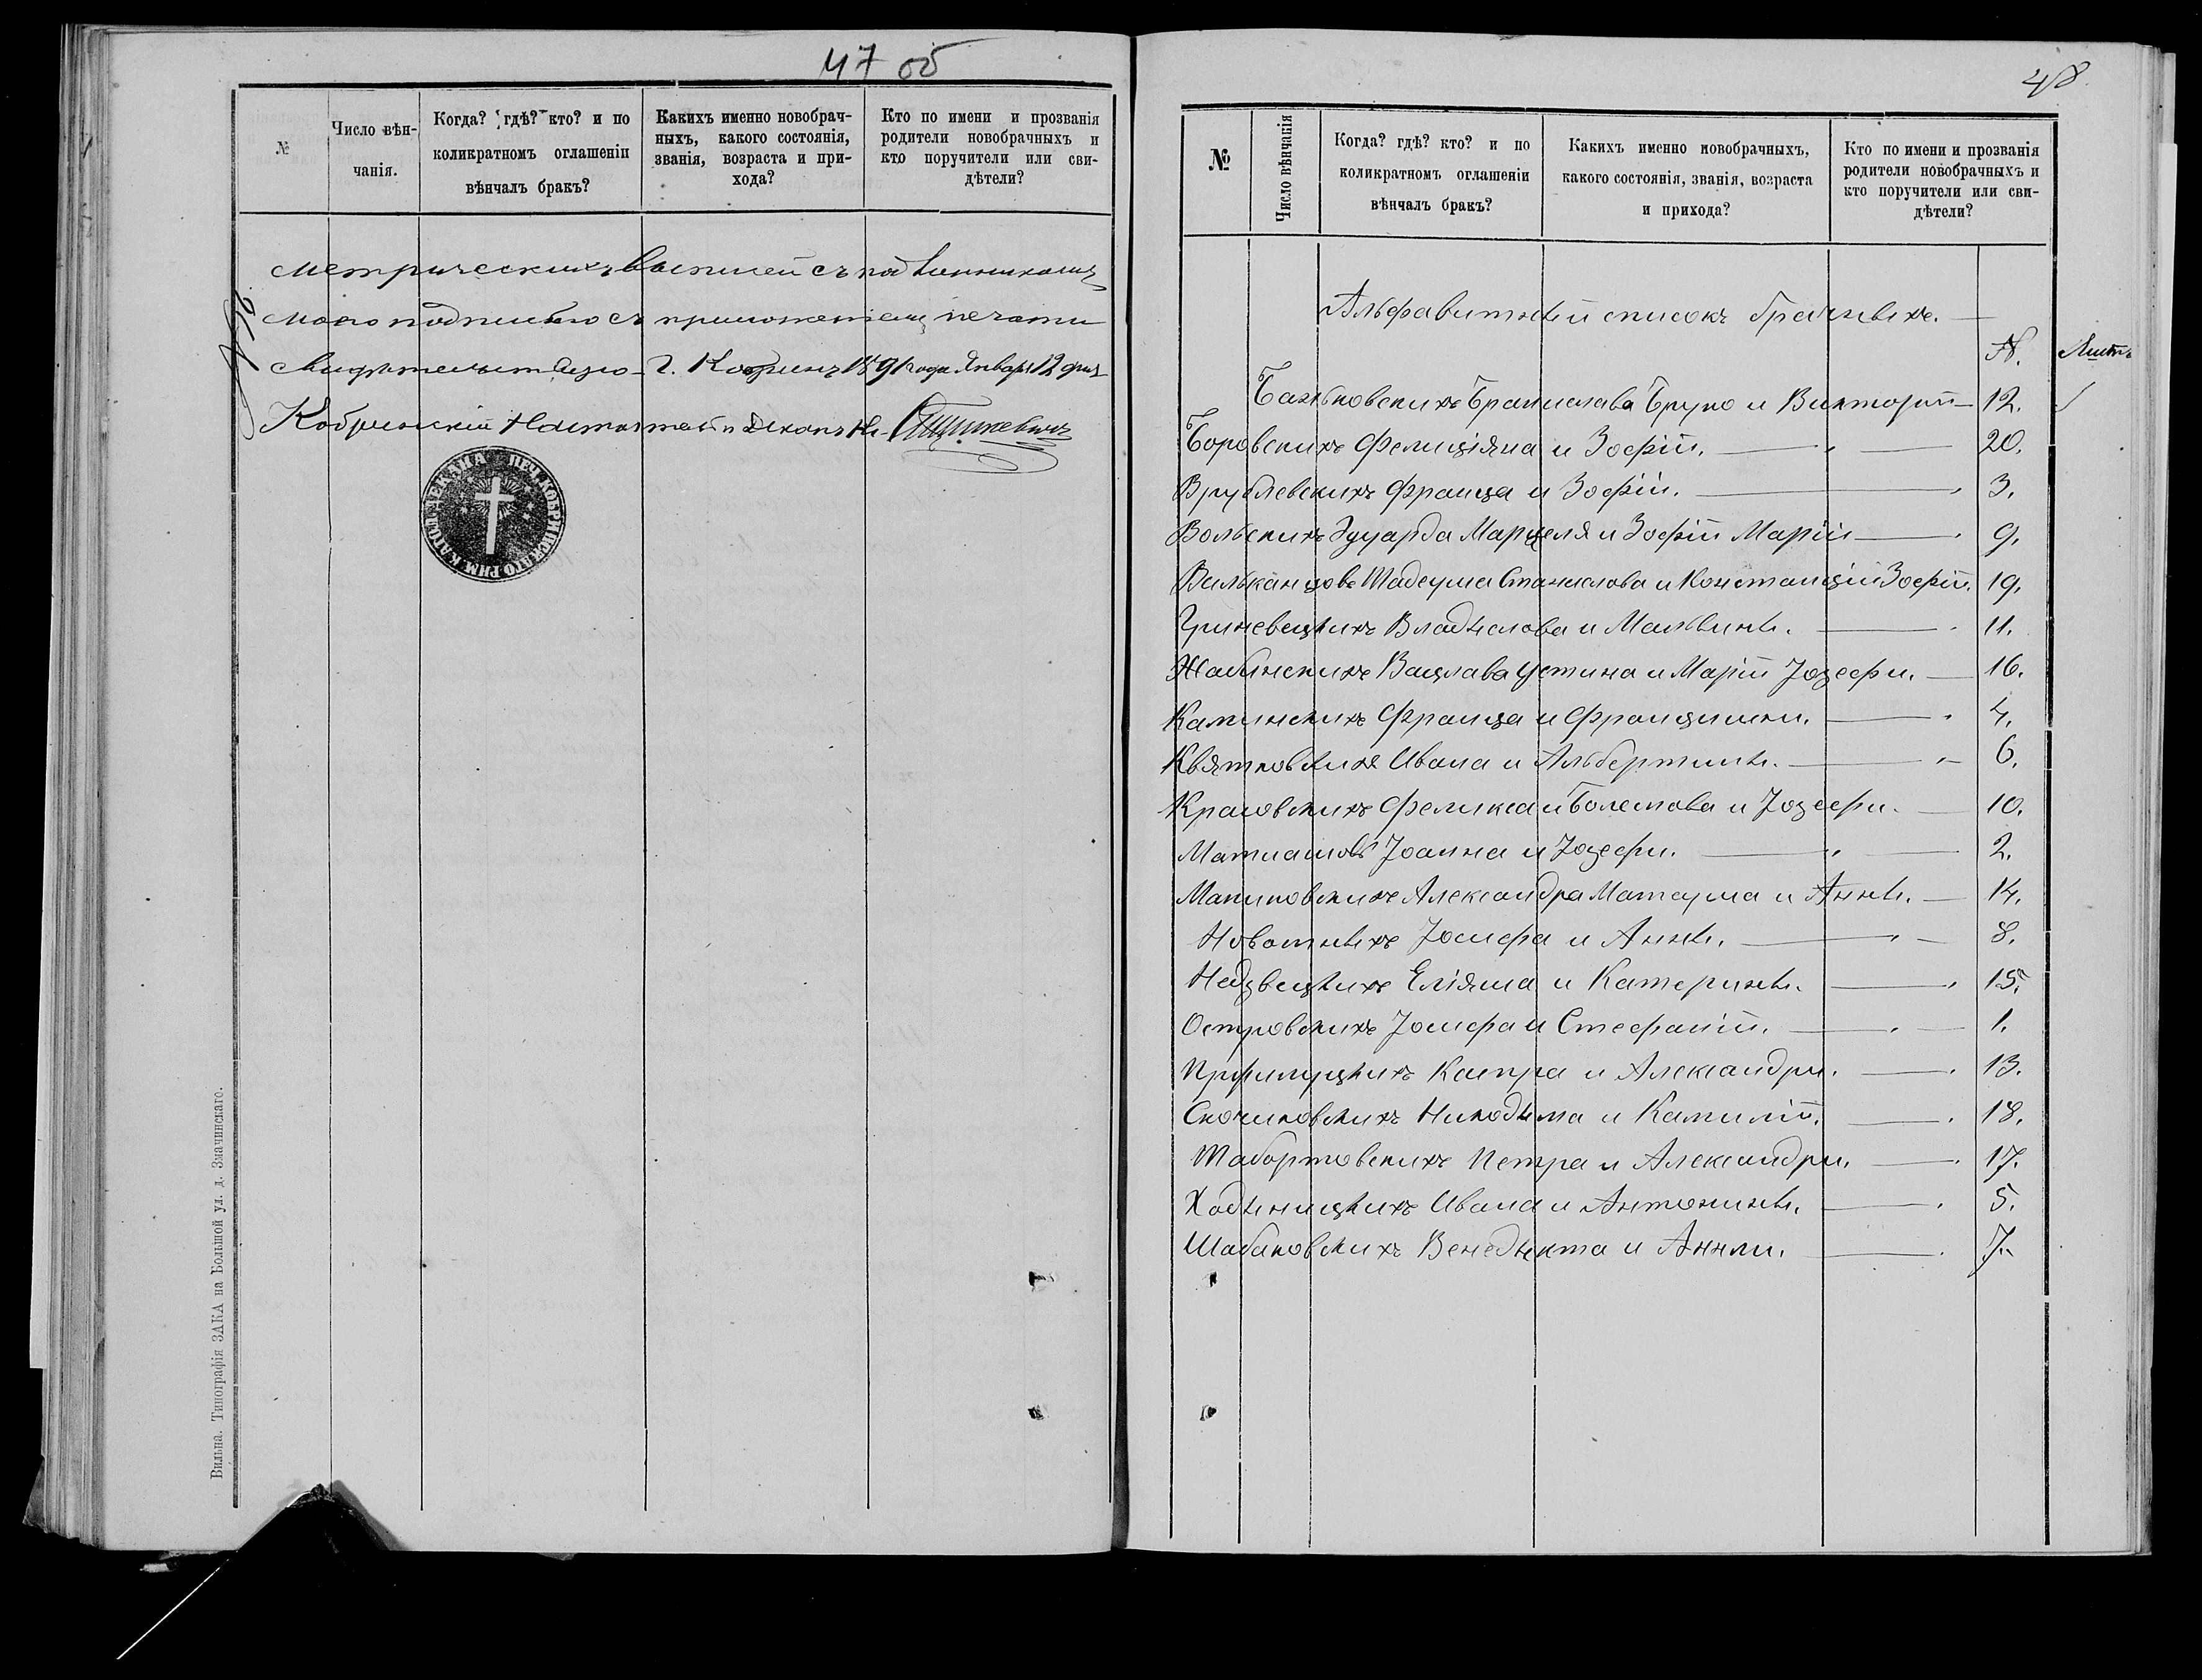 47 об
№
Число вѣн-
чанія.
Когда? гдѣ? кто? и по
коликратномъ оглашеніи
вѣнчалъ бракъ?
Какихъ именно новобрач-
ныхъ, какого состоянія,
званія, возраста и при-
хода?
Кто по имени и прозванія
родители новобрачныхъ и
кто поручители или сви-
дѣтели?
Метрическихъ выписей съ подлинникомъ
моею подписью съ приложеніемъ печати
свидѣтельствую г. Кобринъ 1891 года Января 12 дня
Кобринскій Декан
ПЕЧ. КОБРИНСКАГО РИМ. КАТОЛ. ДЕКАНА
Вильна. Типографія ЗАКА на Большой ул. д. Значинскаго.
48
№
Число вѣнчанія
Когда? гдѣ? кто? и по
коликратномъ оглашеніи
вѣнчалъ бракъ?
Какихъ именно новобрачныхъ,
какого состоянія, званія, возраста
и прихода?
Кто по имени и прозванія
родители новобрачныхъ и
кто поручители или сви-
дѣтели?
Альфавитный списокъ брачныхъ.
№. Листъ
Баньковскихъ Бранислава Бруно и Викторіи 12.
Боровскихъ Фелиціяна и Зофіи. 20.
Врублевскихъ Франца и Зофіи. 3.
Вольскихъ Эдуарда Марцеля и Зофіи Маріи 9.
Вильканцовъ Тадеуша Станислова и Констанціи Зофіи. 19.
Гриневецкихъ Владыслова и Мальвины. 11.
Жабинскихъ Вацлава Устина и Маріи Іозефы. 16.
Каминскихъ Франца и Францишки. 4.
Квятковскихъ Ивана и Альбертины. 6.
Красовскихъ Феликса и Болеслова и Іозефы. 10.
Матиашовъ Іоанна и Іозефы. 2.
Маниковскихъ Александра Матеуша и Анны. 14.
Новотныхъ Іосифа и Анны. 8.
Недзвецкихъ Еліяша и Катерины. 15.
Островскихъ Іосифа и Стефаніи. 1.
Пржилуцкихъ Каспра и Александры. 13.
Скочиковскихъ Никодыма и Камиліи. 18.
Табортовскихъ Петра и Александры. 17.
Ходыницкихъ Ивана и Антонины. 5.
Шабаковскихъ Венедыкта и Анны. 7.